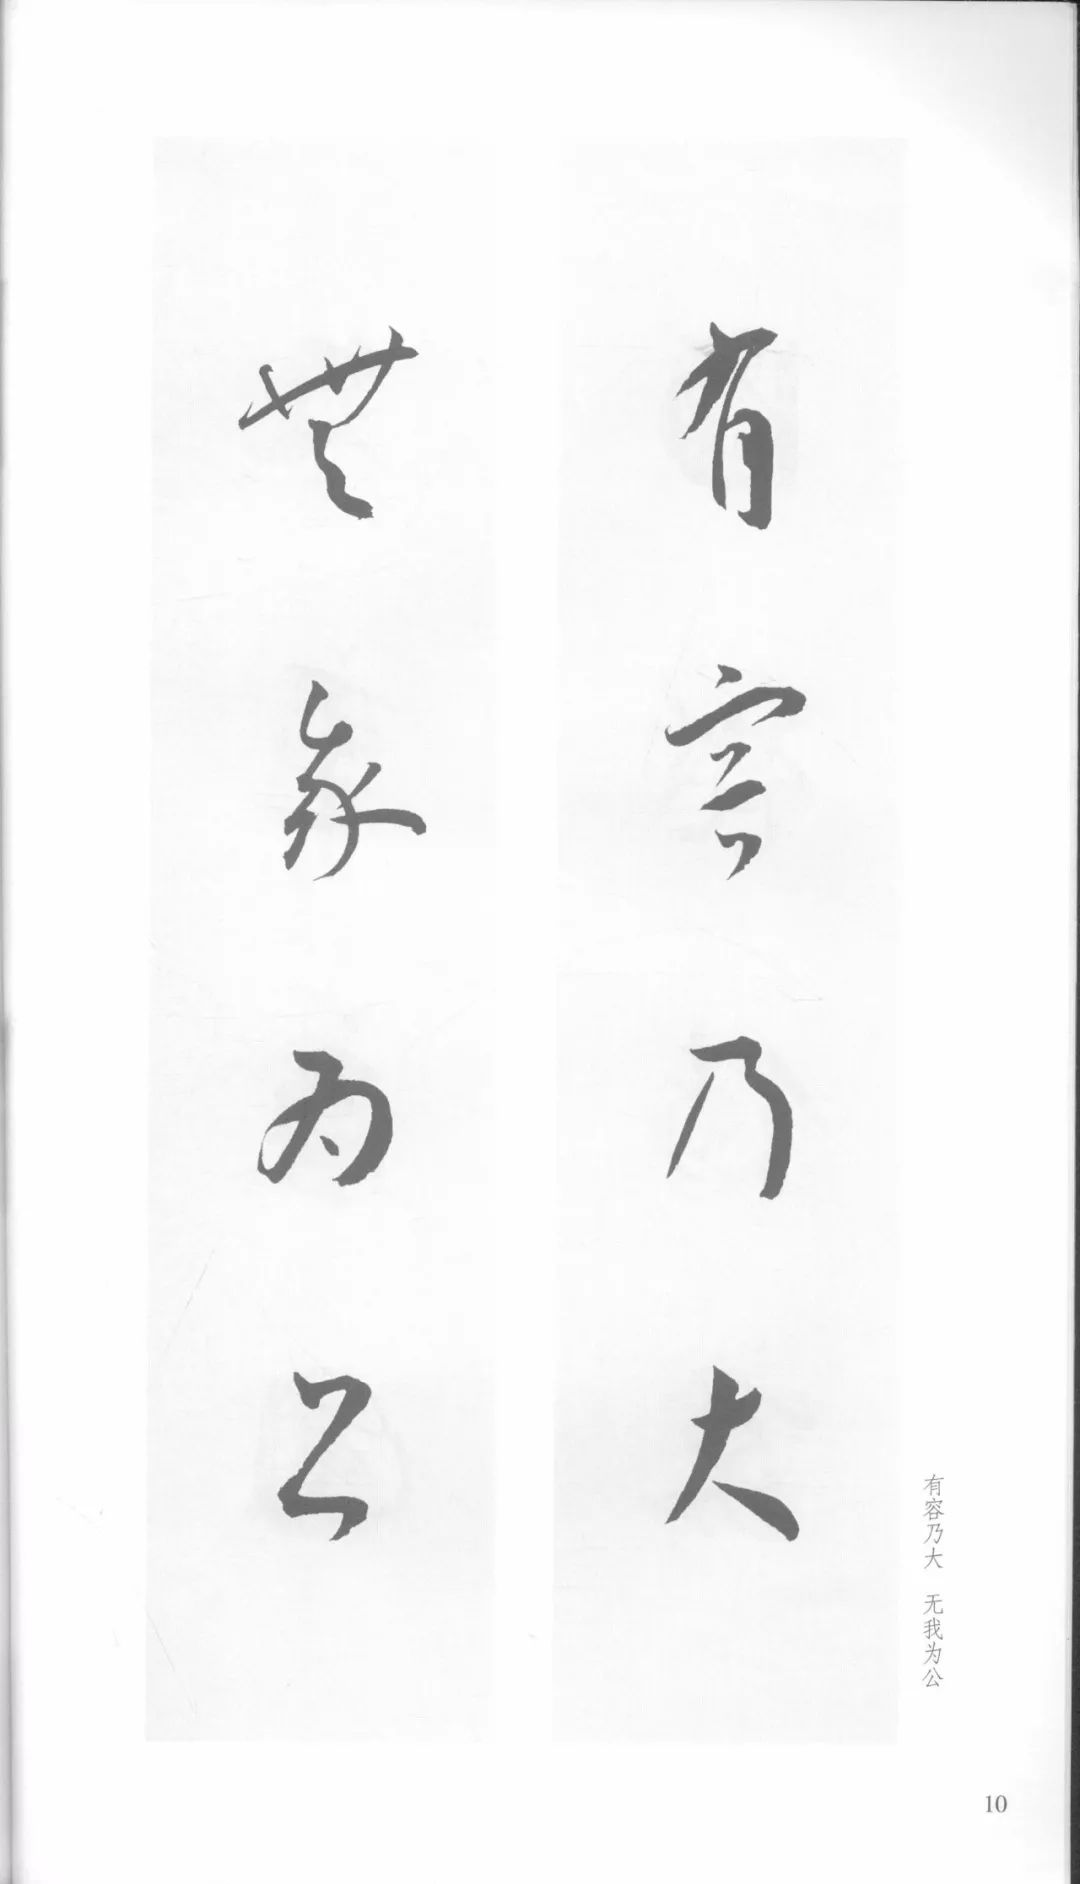 有容乃大
無我为公
有容乃大 无我为公
10